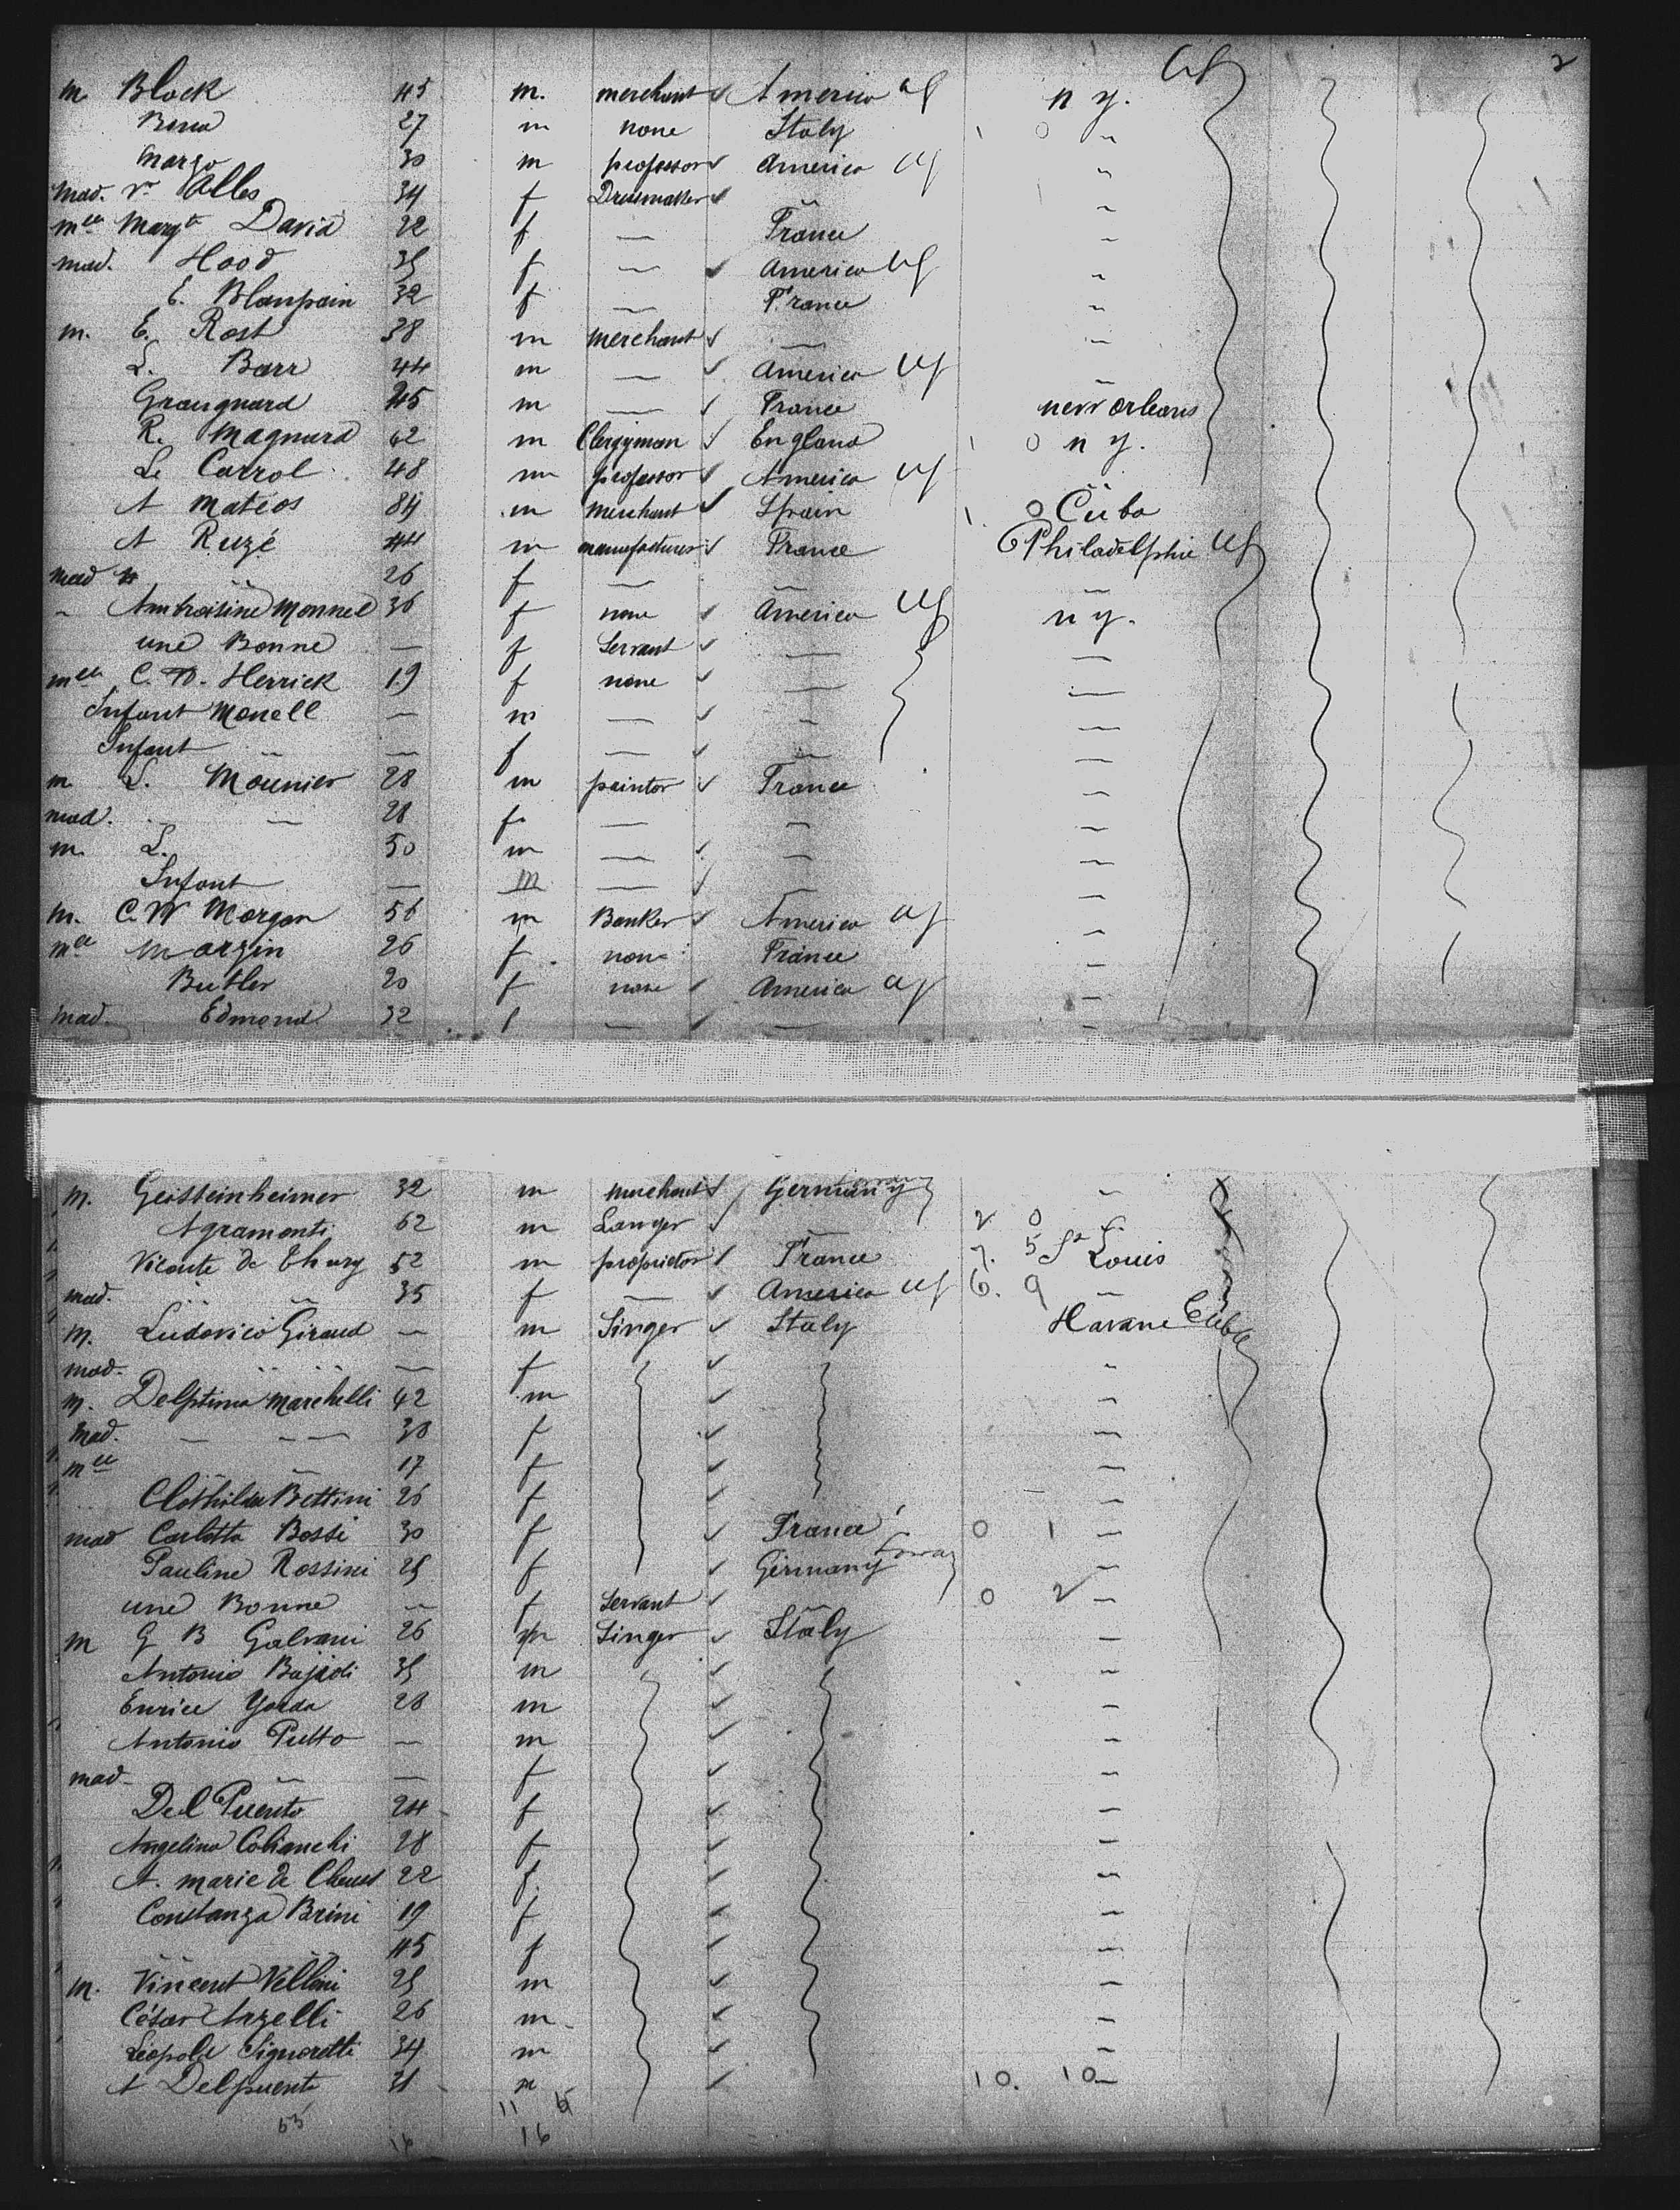 Us 2
M Block 45 m. merchant America Us n y.
27 m none Italy 1 0 "
Margo 30 m professor America Us "
Mad. Vve Alles 34 f Dressmaker " "
Mlle Margte David 22 f — France "
Mad. Hood 35 f — America Us "
E. Blanpain 32 f — France "
M. E. Rost 38 m Merchant — "
L. Barr 44 m — America Us "
Granguard 45 m — France new orleans
R. Magnard 62 m Clergyman England 1 0 n y.
Le Carrol 48 m professor America Us "
A Mateos 84 m Merchant Spain 1. 0 Cuba
A Ruzé 44 m manufacturer France 6 Philadelphie Us
Mad " " 26 f — " —
" Ambroisine Monnel 36 f none America Us n y.
une Bonne — f Servant — —
Mlle C. D. Herrick 19 f none — —
Infant Monell — m — " —
Infant " — f — " —
M L. Mounier 28 m paintor France —
Mad. " — 28 f — " —
M. L. 50 m — — —
Infant — m — — —
M. C. W Morgan 56 m Banker America Us —
Mlle Margin 26 f none France —
Butler 20 f none America Us —
Mad. Edmond 32 f — — "
M. Geistteinheimer 32 m merchant Germany "
Agramonti 62 m " 2 0 "
Vicomte de Thury 52 m proprietor France 7. 5 St Louis
Mad. " " 35 f — America Us 6. 9 "
M. Ludovico Giraud — m Singer Italy Havane Cuba
Mad. " " — f "
M. Marchelli 42 m "
Mad. — — — 30 f —
Mlle " — 17 f —
Clothilde Bettini 26 f —
Mad Carlotta Bossi 30 f France 0 1 —
Pauline Rossini 25 f Germany —
une Bonne — f Servant " 0 2 —
M G B Galvani 26 m Singer Italy —
Antonio 35 m "
Enrice Yorda 28 m —
Antonio Putto — m —
Mad " — — f —
Del Puento 24 f —
Angelina Cobianchi 28 f —
A. Marie de 22 f. —
Constanza Brini 19 f —
" " 45 f —
M. Vincent Vellani 25 m —
César Arzelli 26 m —
Léopold Signoretti 34 m —
A Delpuente 31 m 10. 10 —
11
16